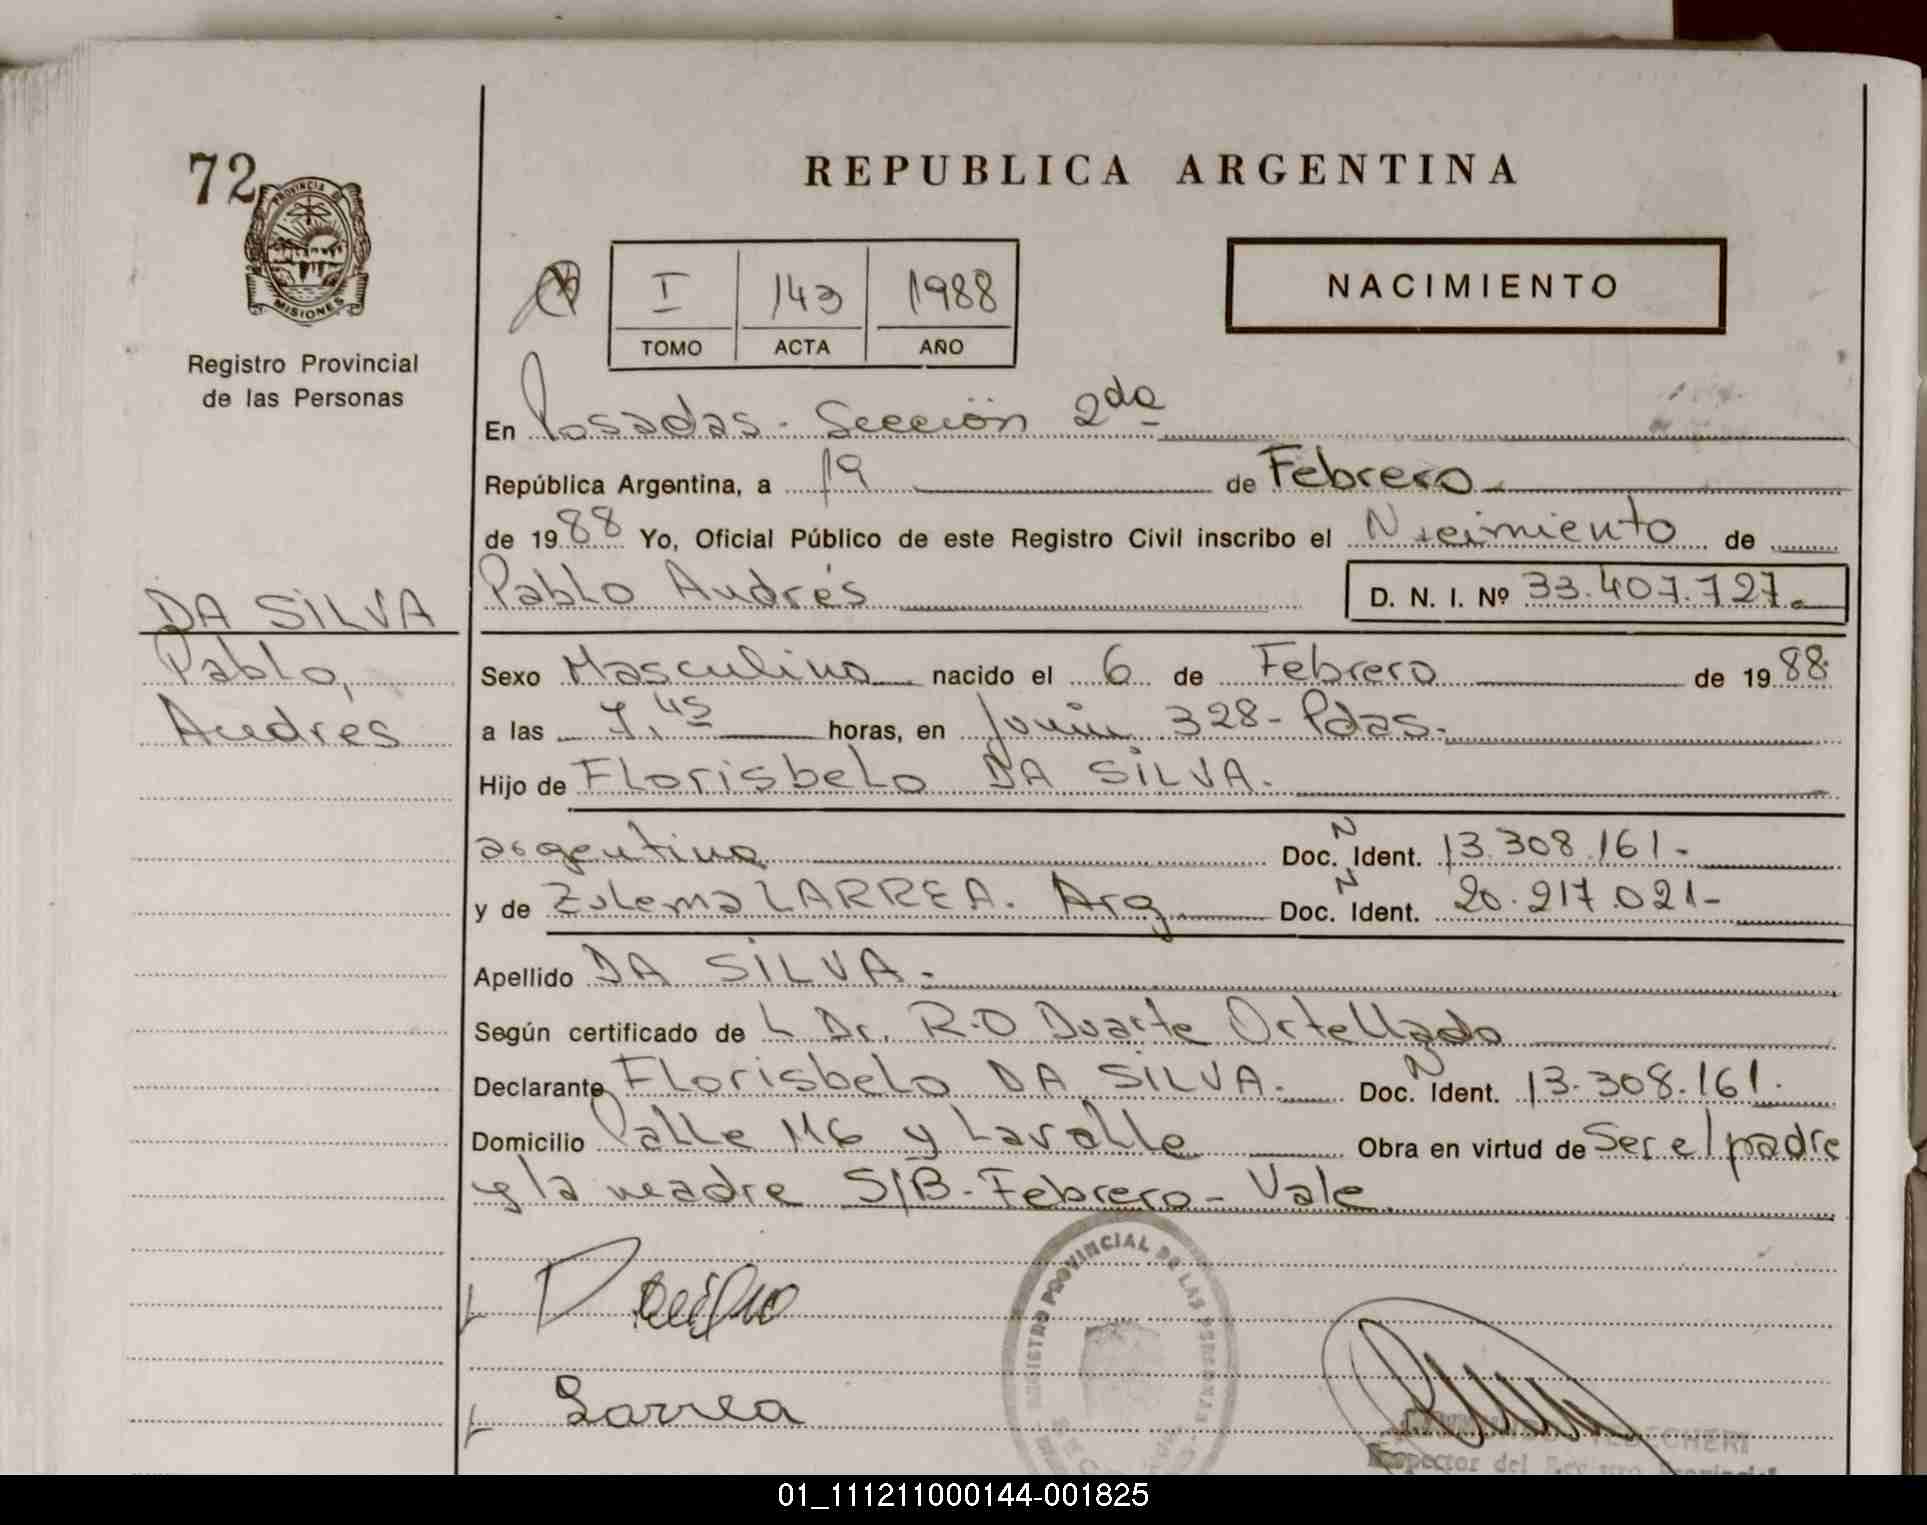 72
PROVINCIA DE
MISIONES
Registro Provincial
de las Personas
REPUBLICA ARGENTINA
I 143 1988
TOMO ACTA AÑO
NACIMIENTO
En Posadas - Sección 2da
República Argentina, a 19 de Febrero
de 1988 Yo, Oficial Público de este Registro Civil inscribo el Nacimiento de
Pablo Andrés D. N. I. Nº 33.407.727.
DA SILVA
Pablo,
Andrés
Sexo Masculino nacido el 6 de Febrero de 1988
a las 7,45 horas, en Junín 328 - Pdas.
Hijo de Florisbelo DA SILVA.
argentino Doc. N Ident. 13.308.161.
y de Zulema LARREA. Arg Doc. N Ident. 20.217.021-
Apellido DA SILVA.
Según certificado de L Dr. R.O Duarte Ortellado
Declarante Florisbelo DA SILVA. Doc. N Ident. 13.308.161.
Domicilio Calle 116 y Lavalle Obra en virtud de Ser el padre
y la madre S/B - Febrero - Vale
REGISTRO PROVINCIAL DE LAS PERSONAS
Larrea
Inspector del Registro Provincial
01_111211000144-001825